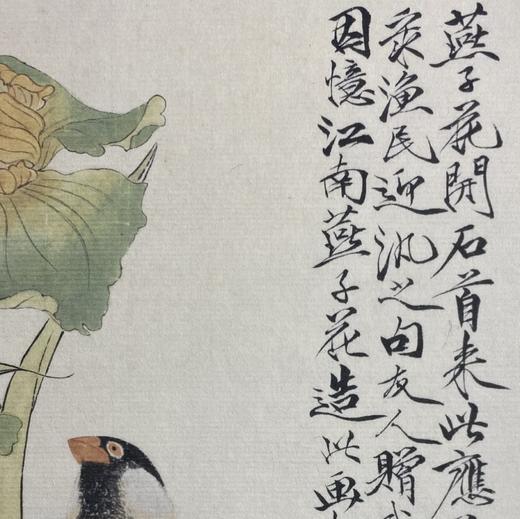 燕子花開石首来此應
家漁民迎汛之句友人贈
因憶江南燕子花造此画